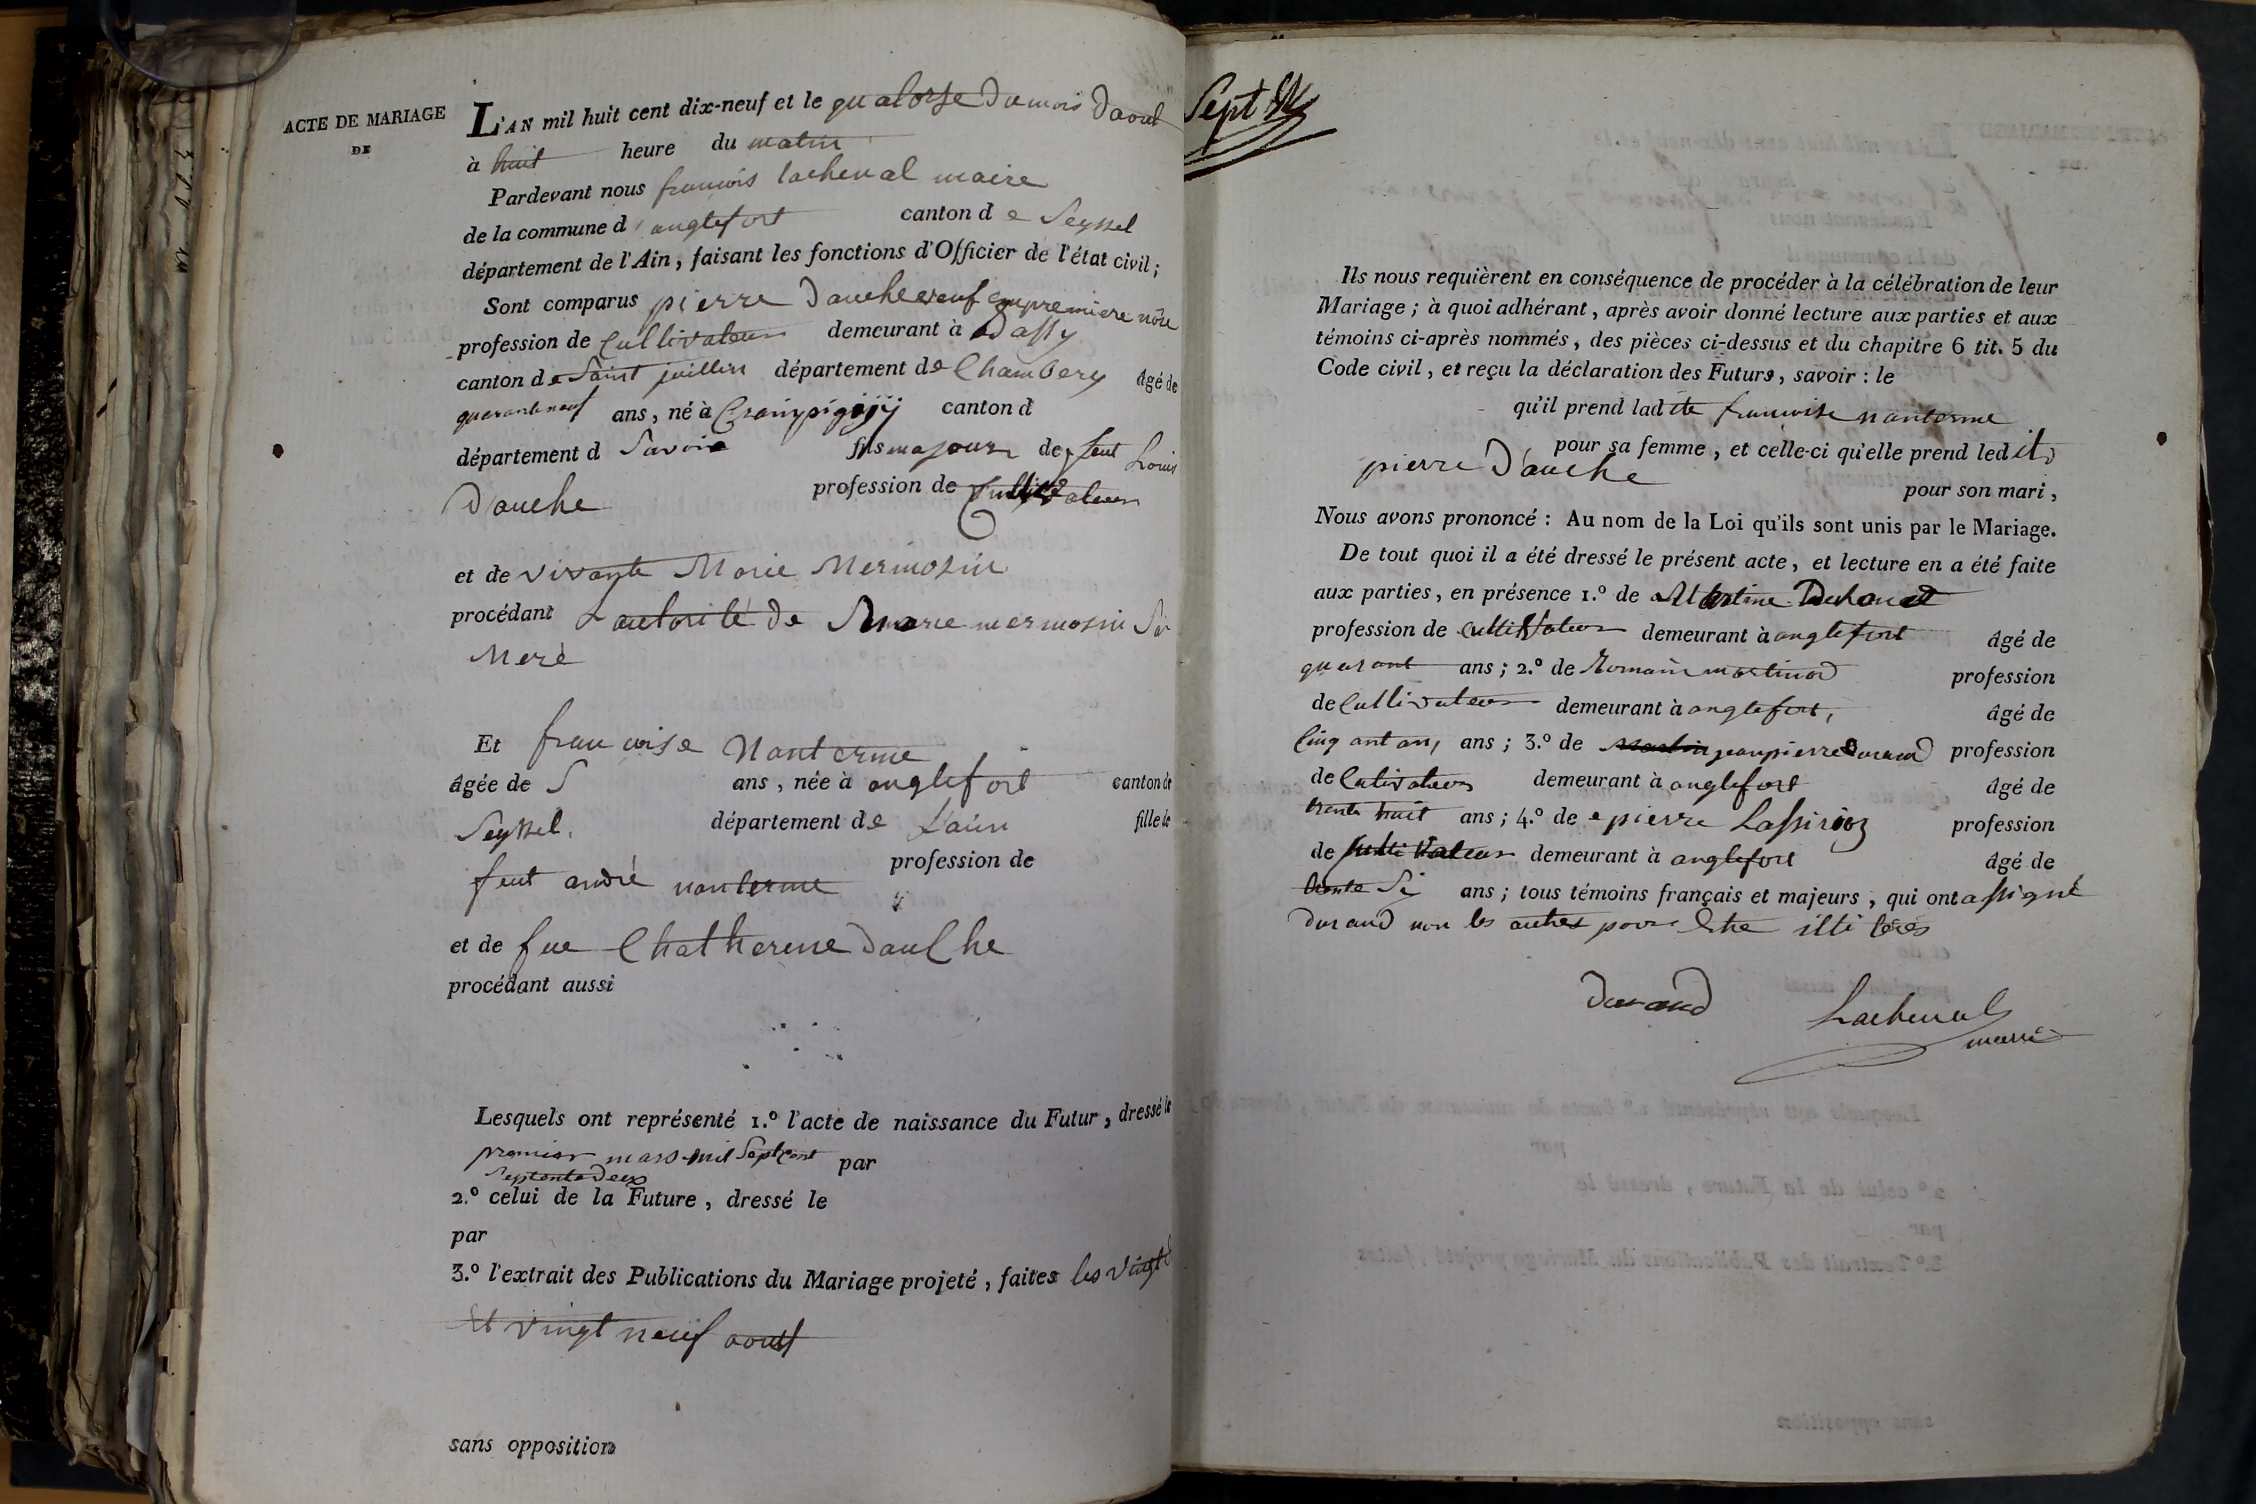 ACTE DE MARIAGE
DE
L'AN mil huit cent dix-neuf et le quatorse du mois daout
à huit heure du matin
Pardevant nous francois lachenal maire
de la commune d'anglefort canton de Seyssel
département de l'Ain, faisant les fonctions d'Officier de l'état civil;
Sont comparus pierre Dauche veuf en premiere nôse
profession de Cultivateur demeurant à Bassy
canton de Saint juillin département de Chambery âgé de
quaranteneuf ans, né à canton d
département d Savoie fils majour de feut Louis
Dauche profession de Cultivateur
et de vivante Marie Mermosin
procédant L'autorité de marie mermosin Sa
Merè
Et francoise Nanterme
âgée de S ans, née à anglefort canton de
Seyssel. département de L'ain fille de
feut andré nanterme profession de
et de fue Chatherene Daulhe
procédant aussi
Lesquels ont représenté 1.º l'acte de naissance du Futur, dressé le
premier mars mil Sept Cent par
Septente deux
2.º celui de la Future, dressé le
par
3.º l'extrait des Publications du Mariage projeté, faites les vingt
et vingt neuf aout
sans opposition
Sept
Ils nous requièrent en conséquence de procéder à la célébration de leur
Mariage; à quoi adhérant, après avoir donné lecture aux parties et aux
témoins ci-après nommés, des pièces ci-dessus et du chapitre 6 tit. 5 du
Code civil, et reçu la déclaration des Futurs, savoir: le
qu'il prend ladite francoise nanterme
pour sa femme, et celle-ci qu'elle prend ledit
pierre Dauche
pour son mari,
Nous avons prononcé: Au nom de la Loi qu'ils sont unis par le Mariage.
De tout quoi il a été dressé le présent acte, et lecture en a été faite
aux parties, en présence 1.º de
profession de Cultivateur demeurant à anglefort âgé de
quarant ans; 2.º de Romain martinod profession
de Cultivateur demeurant à anglefort, âgé de
Cinq ant an, ans; 3.º de jeanpierre Durand profession
de Cultivateur demeurant à anglefort âgé de
trente huit ans; 4.º de pierre Lassirioz profession
de Cultivateur demeurant à anglefort âgé de
trente Si ans; tous témoins français et majeurs, qui ont assigné
durand non les autres pour Etre illitères
durand
Lachenal
marié